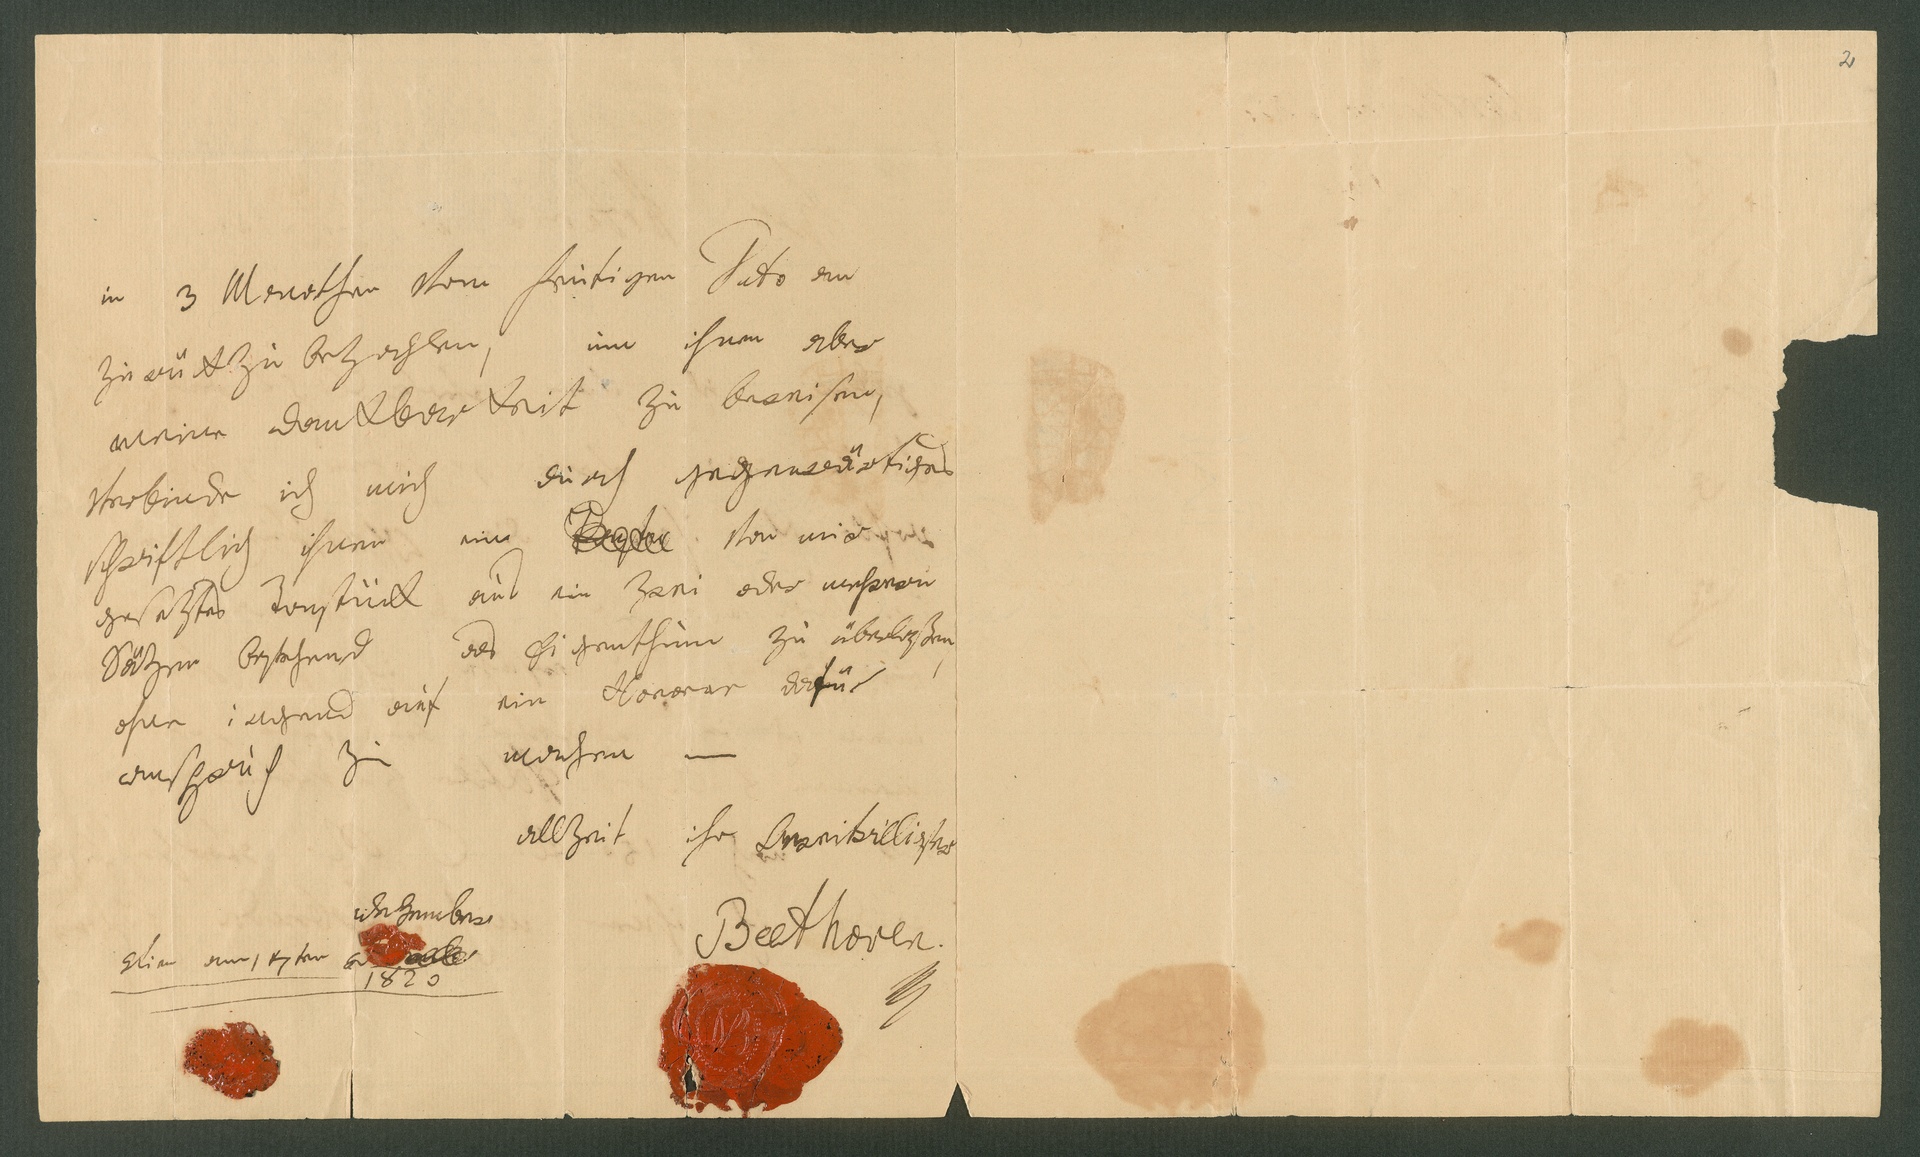 2
in 3 Monathen vom heutigen Dato an
zurükzubezahlen, um ihnen aber
meine dankbarkeit zu beweisen,
verbinde ich mich durch gegenwärtiges
schriftlich ihnen ein von mir
gesetztes Tonstück aus ein zwei oder mehrern
Säzen bestehend als Eigenthum zu überlaßen,
ohne irgend auf ein Honorar dafür
anspruch zu machen —
allzeit ihr bereitwilligster
Beethoven.
decembre
Vien am 17ten
1820